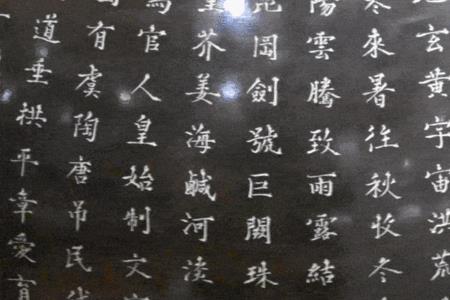 玄黃宇宙洪荒
來暑往秋收冬
陽雲騰致雨露結
崑岡劍號巨闕珠
芥姜海鹹河淡
官人皇始制文
有虞陶唐吊民
道垂拱平章愛育